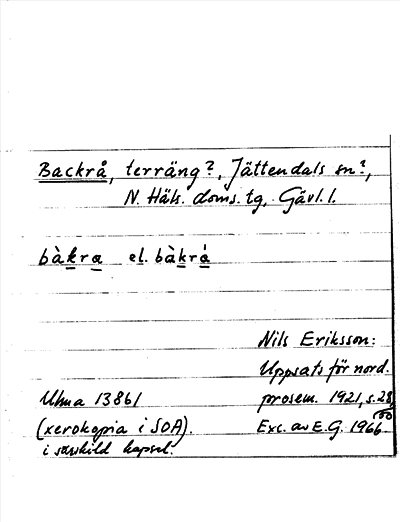 Backrå, terräng?, Jättendals sn?,
N. Häls. doms. tg, Gävl. l.
bàkra el. bàkrá
Nils Eriksson:
Uppsats för nord.
Ulma 13861 prosem. 1921, s. 28,
(xerokopia i SOA). Exc. av E.G. 1966
i särskild kapsel.